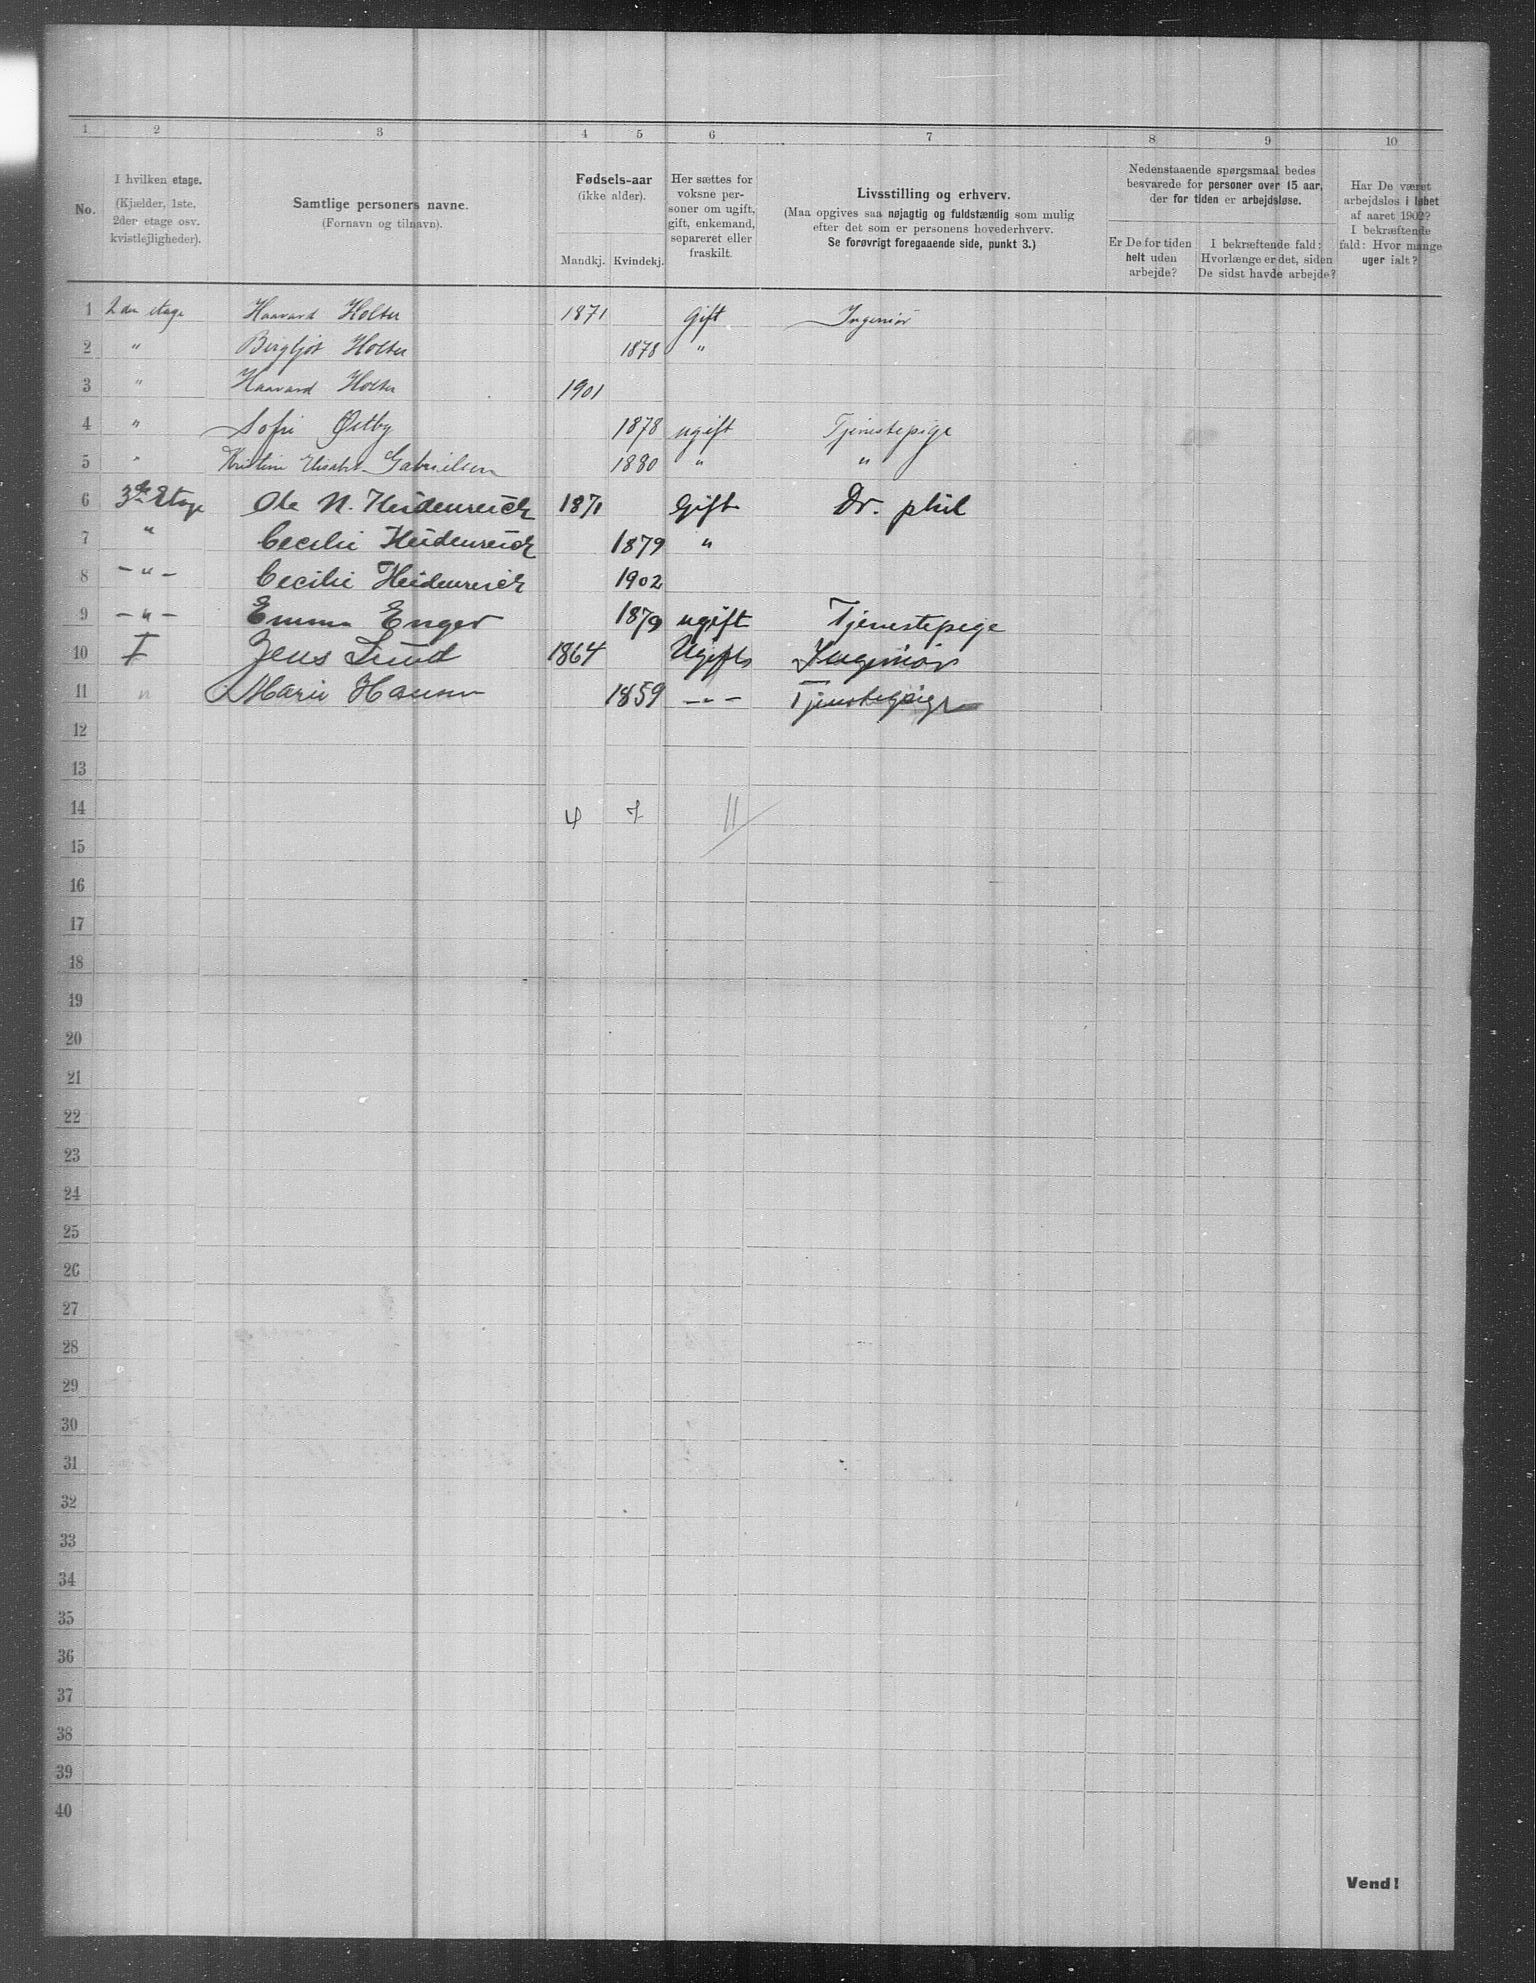 1 2 3 4 5 6 7 8 9 10
No.
I hvilken etage.
(Kjælder, 1ste,
2der etage osv.
kvistlejligheder).
Samtlige personers navne.
(Fornavn og tilnavn).
Fødsels-aar
(ikke alder).
Mandkj. Kvindekj.
Her sættes for
voksne per-
soner om ugift,
gift, enkemand,
separeret eller
fraskilt.
Livsstilling og erhverv.
(Maa opgives saa nøjagtig og fuldstændig som mulig
efter det som er personens hovederhverv.
Se forøvrigt foregaaende side, punkt 3.)
Nedenstaaende spørgsmaal bedes
besvarede for personer over 15 aar,
der for tiden er arbejdsløse.
Er De for tiden
helt uden
arbejde?
I bekræftende fald:
Hvorlænge er det, siden
De sidst havde arbejde?
Har De været
arbejdsløs i løbet
af aaret 1902?
I bekræftende
fald: Hvor mange
uger ialt?
1 2den etage Haavard Holter 1871 Gift Ingeniør
2 " Bergljot Holter 1878 "
3 " Haavard Holter 1901
4 " Sofie Østby 1878 ugift Tjenestepige
5 " Kristine Elisabet Gabrielsen 1880 " "
6 3de Etage Ole N. Heidenreich 1871 Gift Dr. phil
7 " Cecilie Heidenreich 1879 "
8 – " – Cecilie Heidenreich 1902
9 – " – Emma Enger 1879 ugift Tjenestepige
10 I Jens Lund 1864 Ugift Ingeniør
11 " Marie Hansen 1859 – " – Tjenestepige
12
13
14 4 7 11
15
16
17
18
19
20
21
22
23
24
25
26
27
28
29
30
31
32
33
34
35
36
37
38
39
40
Vend!